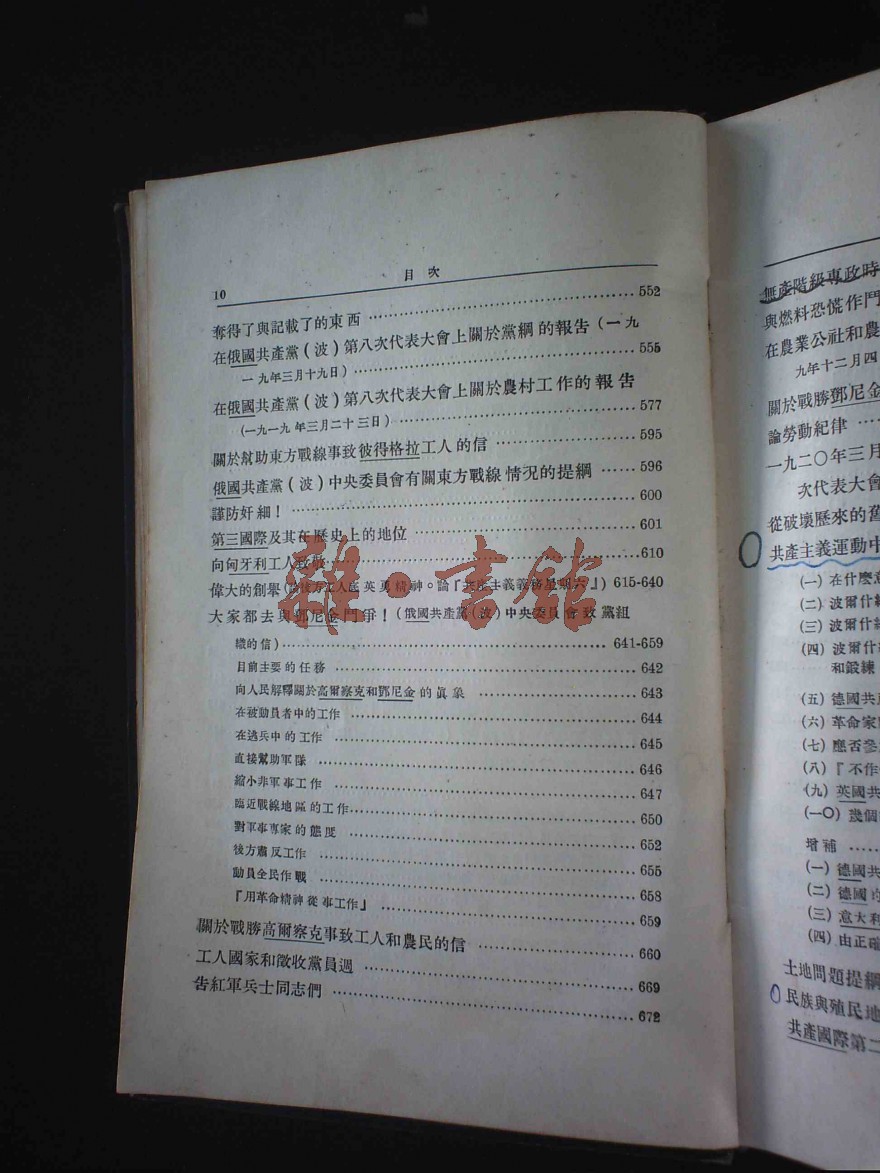 10
目次
奪得了與記載了的東西 552
在俄國共產黨(波)第八次代表大會上關於黨綱的報告(一九
一九年三月十九日) 555
在俄國共產黨(波)第八次代表大會上關於農村工作的報告
(一九一九年三月二十三日) 577
關於幫助東方戰線事致彼得格拉工人的信 595
俄國共產黨(波)中央委員會有關東方戰線情況的提綱 596
謹防奸細! 600
第三國際及其在歷史上的地位 601
向匈牙利工人致敬 610
偉大的創舉(論後方工人底英勇精神。論『共產主義義務星期六』) 615-640
大家都去與鄧尼金鬥爭!(俄國共產黨(波)中央委員會致黨組
織的信) 641-659
目前主要的任務 642
向人民解釋關於高爾察克和鄧尼金的眞象 643
在被動員者中的工作 644
在逃兵中的工作 645
直接幫助軍隊 646
縮小非軍事工作 647
臨近戰線地區的工作 650
對軍事專家的態度 652
後方肅反工作 655
動員全民作戰 658
『用革命精神從事工作』 659
關於戰勝高爾察克事致工人和農民的信 660
工人國家和徵收黨員週 669
告紅軍兵士同志們 672
雜·書館
無產階級專政時
與燃料恐慌作鬥
在農業公社和農
九年十二月四
關於戰勝鄧尼金
論勞動紀律
一九二〇年三月
次代表大會
從破壞歷來的舊
共產主義運動中
(一) 在什麽意
(二) 波爾什
(三) 波爾什
(四) 波爾什
和鍛練
(五) 德國共
(六) 革命家
(七) 應否參
(八) 『不作
(九) 英國共
(一〇) 幾個
增補
(一) 德國共
(二) 德國
(三) 意大利
(四) 由正確
土地問題提綱
民族與殖民地
共產國際第二